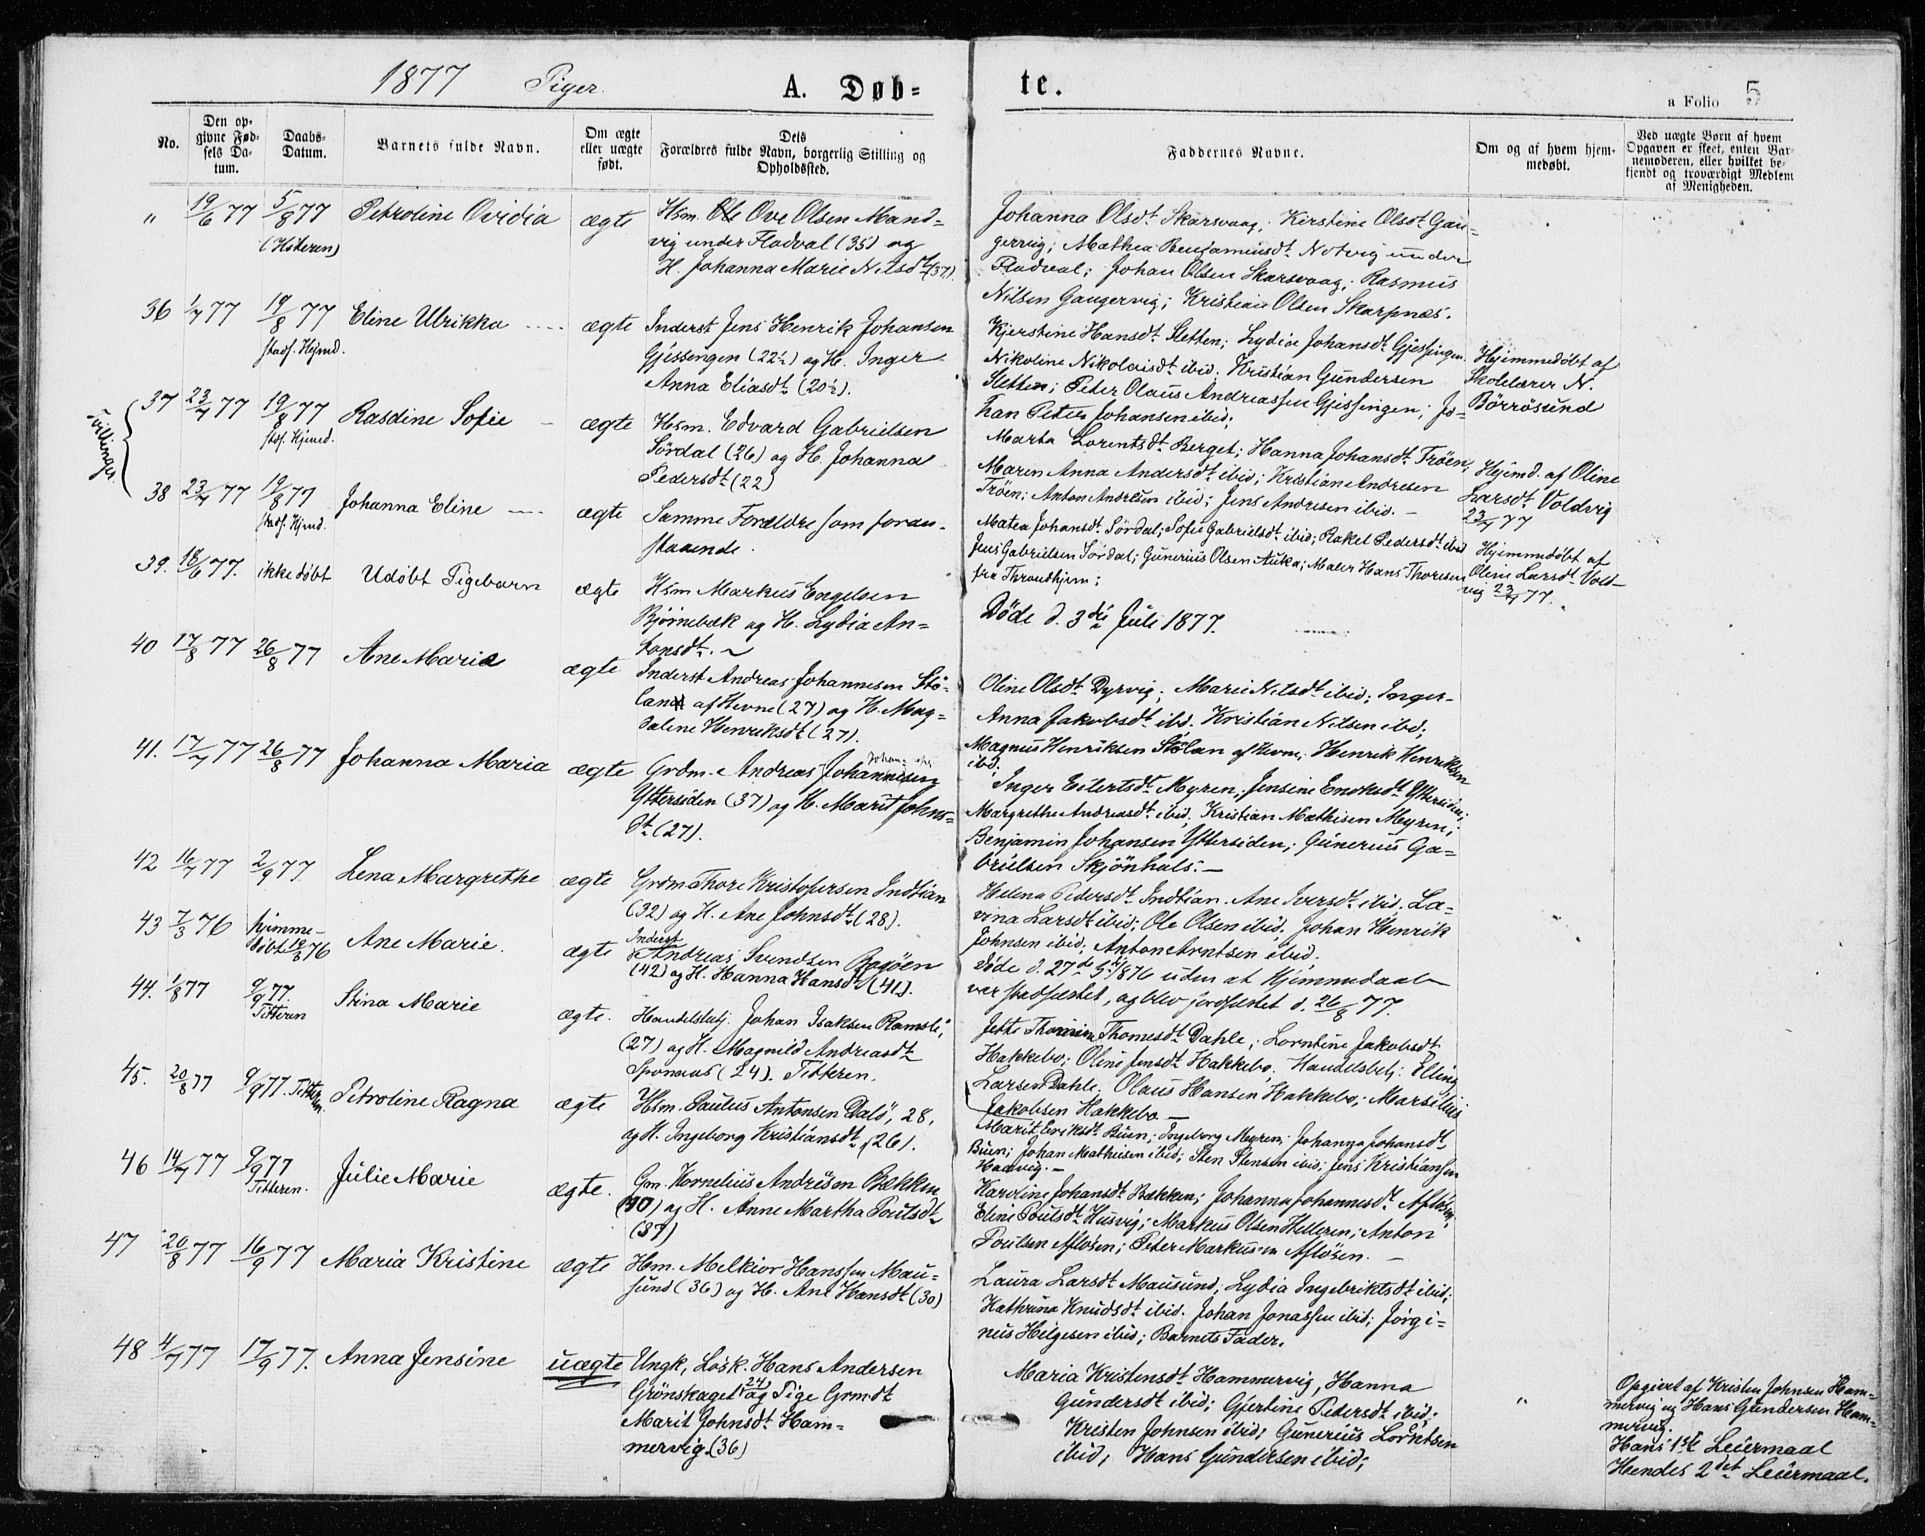 1877 Piger. A. Døb= te. a Folio 5
No.
Den op-
givne Fød-
sels Da-
tum.
Daabs-
Datum.
Barnets fulde Navn.
Om ægte
eller uægte
født.
Dets
Forældres fulde Navn, borgerlig Stilling og
Opholdssted.
Faddernes Navne.
Om og af hvem hjem-
medøbt.
Ved uægte Børn af hvem
Opgaven er skeet, enten Bar-
nemoderen, eller hvilket be-
kjendt og troværdigt Medlem
af Menigheden.
" 19/6 77 5/8 77 Petroline Ovidia ægte
(Hitteren)
Hsm. Ole Ove Olsen Mand=
vig under Fladval (35) og
H. Johanna Marie Nilsdt (37).
Johanna Olsdt Skarsvaag; Kirstine Olsdt Gau=
gervig; Mathea Benjaminsdt Notvig under
Fladval; Johan Olsen Skarsvaag; Rasmus
Nilsen Gaugervig; Kristian Olsen Skarpnæs.
36 1/7 77 19/8 77 Eline Ulrikka ægte
stadf. Hjmd.
Inderst Jens Henrik Johansen
Gjessingen (22½) og H. Inger
Anna Eliasdt (20½).
Kjerstine Hansdt Sletten; Lydia Johansdt Gjessingen
Nikoline Nikolaisdt ibid. Kristian Gundersen
Sletten; Peter Olaus Andreassen Gjessingen; Jo=
han Peter Johansen ibid;
Hjemmedøbt af
Skolelærer N.
Börrösund
Tvillinger
37 23/7 77 19/8 77 Rasdine Sofie ægte
stadf. Hjemd.
Hsm. Edvard Gabrielsen
Sørdal (26) og H. Johanna
Pedersdt (22)
Marta Lorentsdt Berget; Hanna Johansdt Trøen,
Maren Anna Andersdt ibid; Kristian Andresen
Trøen; Anton Andresen ibid; Jens Andresen ibid. –
Hjemd. af Oline
Larsdt Voldvig
23/7 77
38 23/7 77 19/8 77 Johanna Eline ægte
stadf. Hjemd.
Samme Forældre som foran-
staaende.
Matea Johansdt Sørdal; Sofie Gabrielsdt ibid; Rakel Pedersdt ibid
Jens Gabrielsen Sørdal; Gunerius Olsen Auka; Maler Hans Thoresen
fra Throndhjem;
Hjemmedøbt af
Oline Larsdt Vold-
vig 23/7 77.
39. 18/6 77. ikke døbt Udøbt Pigebarn ægte
Hsm Markus Engelsen
Bjørnebæk og H. Lydia An=
tonsdt.
Døde d. 3die Juli 1877.
40 17/8 77 26/8 77 Ane Marie ægte
Inderst Andreas Johannesen Stö-
lan af Hevne (27) og H. Mag=
dalene Henriksdt (27).
Oline Olsdt Dyrvig; Marie Nilsdt ibid; Inger-
Anna Jakobsdt ibd. Kristian Nilsen ibd;
Magnus Henriksen Stölan af Hevne; Henrik Henriksen
ibd.
41. 17/7 77 26/8 77 Johanna Maria ægte
Grdm. Andreas Johannesen
Yttersiden (37) og H. Marit Johns=
dt (27).
Inger Eilertsdt Myren; Jensine Enoksdt Yttersiden;
Margrethe Andreasdt ibid; Kristian Mathisen Myren;
Benjamin Johansen Yttersiden; Gunerius Ga=
brielsen Skjönhals. –
42 16/7 77 2/9 77. Lena Margrethe ægte
Grdm Thore Kristofersen Indtian
(32) og H. Ane Johnsdt (28).
Helena Pedersdt Indtian. Ane Iversdt ibid. La=
vina Larsdt ibid; Ole Olsen ibid. Johan Henrik
Johnsen ibid; Anton Arntsen ibid.
43 7/3 76 hjemme-
døbt 19/3 76 Ane Marie. ægte
Inderst
Andreas Svendsen Bogöen
(42) og H. Hanna Hansdt (41).
Døde d. 27de 1876 uden at Hjemmedaab
var stadfæstet, og blev jordfæstet d. 26/8 77.
44. 1/8 77 9/9 77. Stina Marie ægte.
Titteren
Handelsbetj. Johan Isaksen Ramsli,
(27) og H. Magnild Andreasdt
Sponaas (24). Titteren.
Jette Thomine Thomesdt Dahle; Lorntine Jakobsdt
Hakkebo; Oline Jensdt Hakkebo; Handelsbetj: Elling
Larsen Dahle. Olaus Hansen Hakkebo; Marselius
Jakobsen Hakkebo –
45. 20/8 77 9/9 77. Titteren Petroline Ragna ægte
Hsm. Paulus Antonsen Dalö, 28,
og H. Ingeborg Kristiansdt (26).
Marit Eriksdt Buen; Ingeborg Myren; Johanna Johansdt
Buen; Johan Mathisen ibid; Sten Stensen ibid; Jens Kristiansen
Haavig. –
46 14/7 77 9/9 77 Julie Marie ægte.
Titteren.
Grm. Kornelius Andresen Bækken
(40) og H. Anne Martha Poulsdt
(37)
Karoline Johansdt Bækken; Johanna Johannesdt Aflösen,
Eline Poulsdt Husvig; Markus Olsen Helleren; Anton
Poulsen Aflösen; Peter Markussen Aflösen. –
47 20/8 77 16/9 77 Maria Kristine ægte
Hsm. Melkior Hanssen Mau=
sund (36) og H. Ane Hansdt (30)
Laura Larsdt Mausund; Lydia Ingebriktsdt ibid;
Kathrina Knudsdt ibid. Johan Jonassen ibid; Jørgi=
nus Helgesen ibid; Barnets Fader.
48 4/7 77 17/9 77. Anna Jensine uægte
Ungk, Losk. Hans Andersen
Grönskaget (24) og Pige Grmdt
Marit Johnsdt Ham=
mervig (36)
Maria Kristensdt Hammervig, Hanna
Gundersdt ibid; Gjertine Pedersdt ibid;
Kristen Johnsen ibid; Gunerius Lorntsen
ibid; Hans Gundersen ibid;
"
Opgivet af Kristen Johnsen Ham=
mervig og Hans Gundersen Ham=
mervig.
Hans 1ste Leiermaal
Hendes 2det Leiermaal.